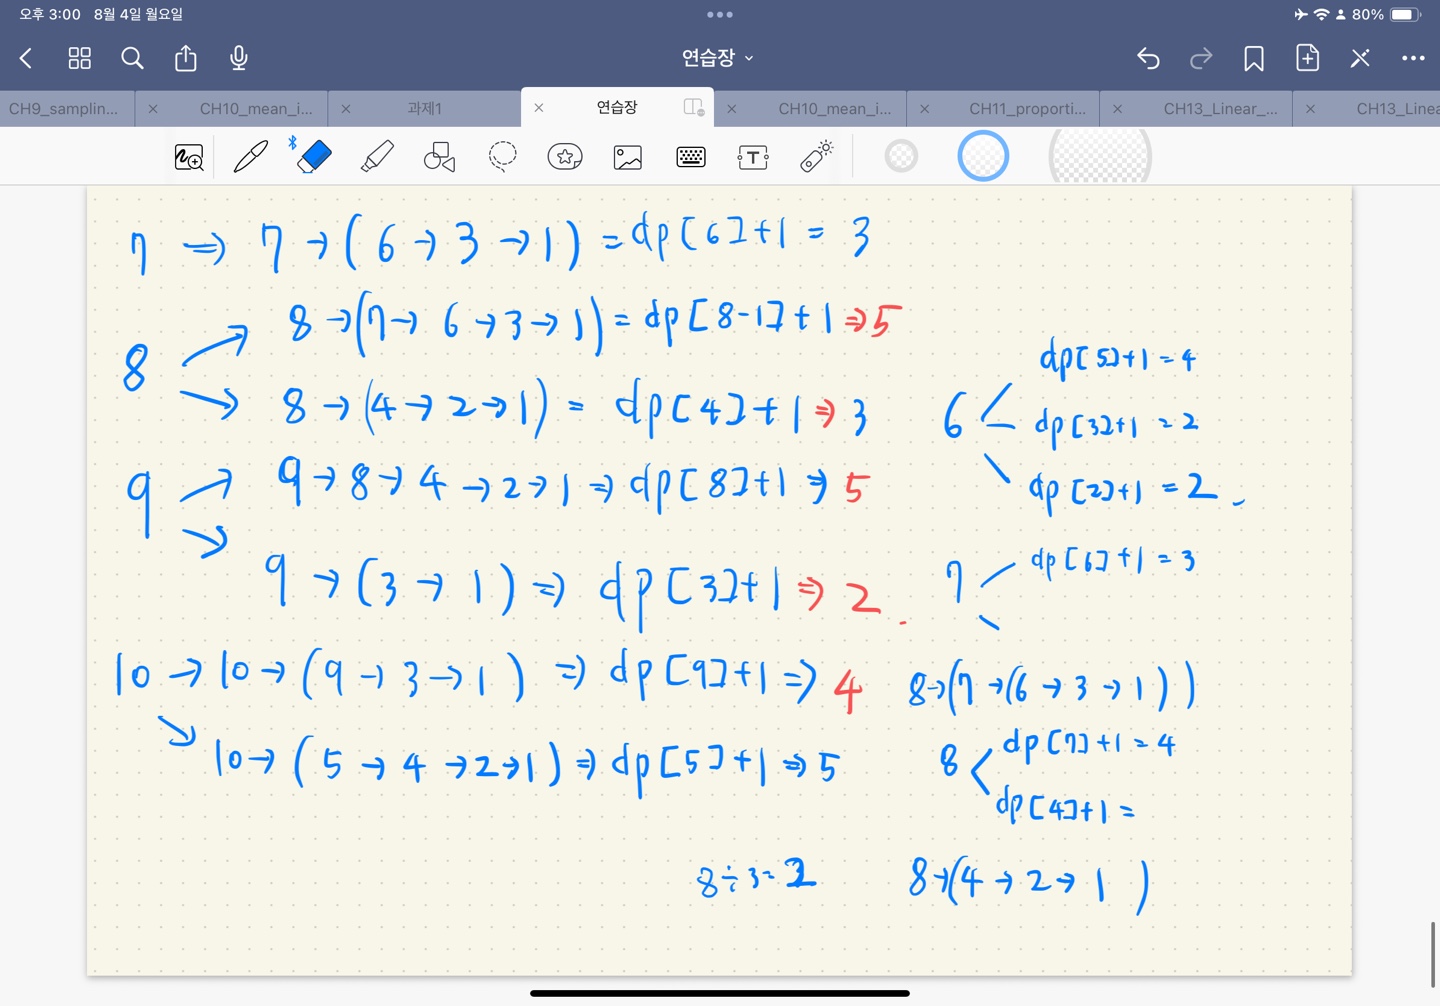 오후 3:00 8월 4일 월요일
80%
연습장
CH9_samplin...
CH10_mean_i...
과제1
연습장
CH10_mean_i...
CH11_proporti...
CH13_Linear_...
CH13_Linea
7 ⇒ 7 → ( 6 → 3 → 1 ) = dp[6]+1 = 3
8
8 → (7 → 6 → 3 → 1) = dp[8-1]+1 ⇒ 5
8 → (4 → 2 → 1) = dp[4]+1 ⇒ 3
9
9 → 8 → 4 → 2 → 1 ⇒ dp[8]+1 ⇒ 5
9 → (3 → 1) ⇒ dp[3]+1 ⇒ 2 .
10 → 10 → (9 → 3 → 1) ⇒ dp[9]+1 ⇒ 4
10 → (5 → 4 → 2 → 1) ⇒ dp[5]+1 ⇒ 5
6
dp[5]+1 = 4
dp[3]+1 = 2
dp[2]+1 = 2
7
dp[6]+1 = 3
8 → (7 → (6 → 3 → 1))
8
dp[7]+1 = 4
dp[4]+1 =
8 ÷ 3 = 2
8 → (4 → 2 → 1 )